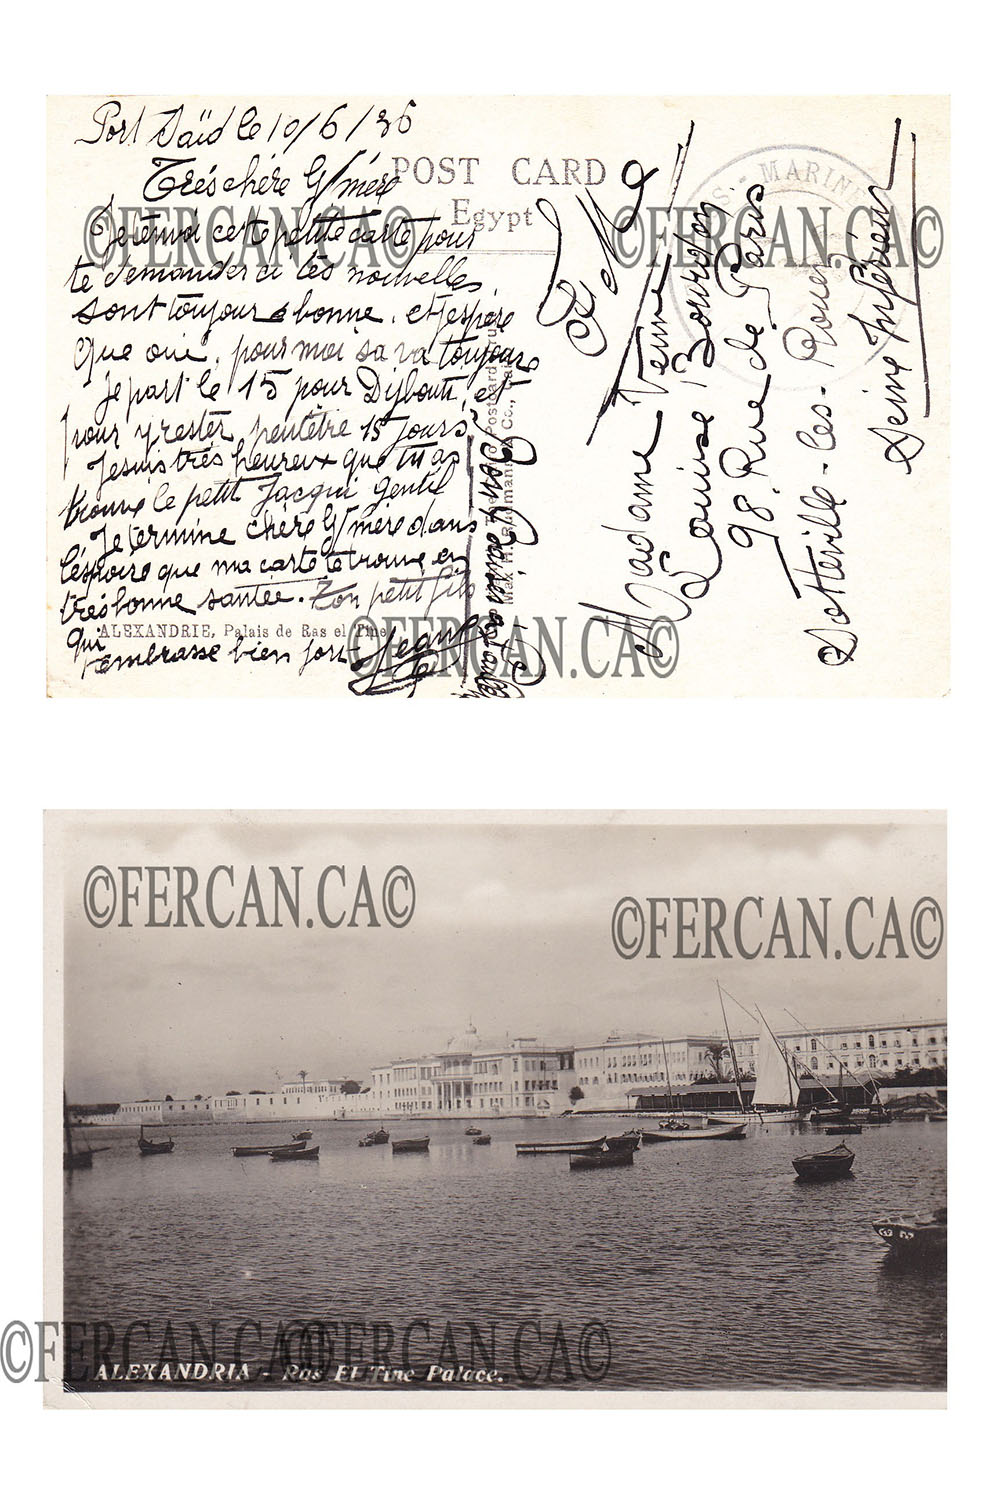 Port Saïd le 10/6/36
Très chère G/mère
POST CARD
Egypt
Je
cette petite carte pour
te demander ci tès nouvelles
sont toujours bonne. et j'espère
que oui, pour moi sa va toujours
Je part le 15 pour Djibouti, et
pour y rester peutètre 15 jours
Je suis très heureux que tu as
trouvé le petit Jacqui gentil
Je termine chère G/mère dans
l'éspoire que ma carte te trouve en
très bonne santée. Ton petit fils
qui
t'embrasse bien fort
ALEXANDRIE, Palais de Ras el Tine
Max H. Rudmann
Madame Veuve
Louise Bourdon
98. Rue de Paris
Sotteville-les-Rouen
Seine Inférieur
MARINE
©FERCAN.CA©
©FERCAN.CA©
©FERCAN.CA©
©FERCAN.CA©
©FERCAN.CA©
©FERCAN.CA©
©FERCAN.CA©
ALEXANDRIA - Ras El Tine Palace.